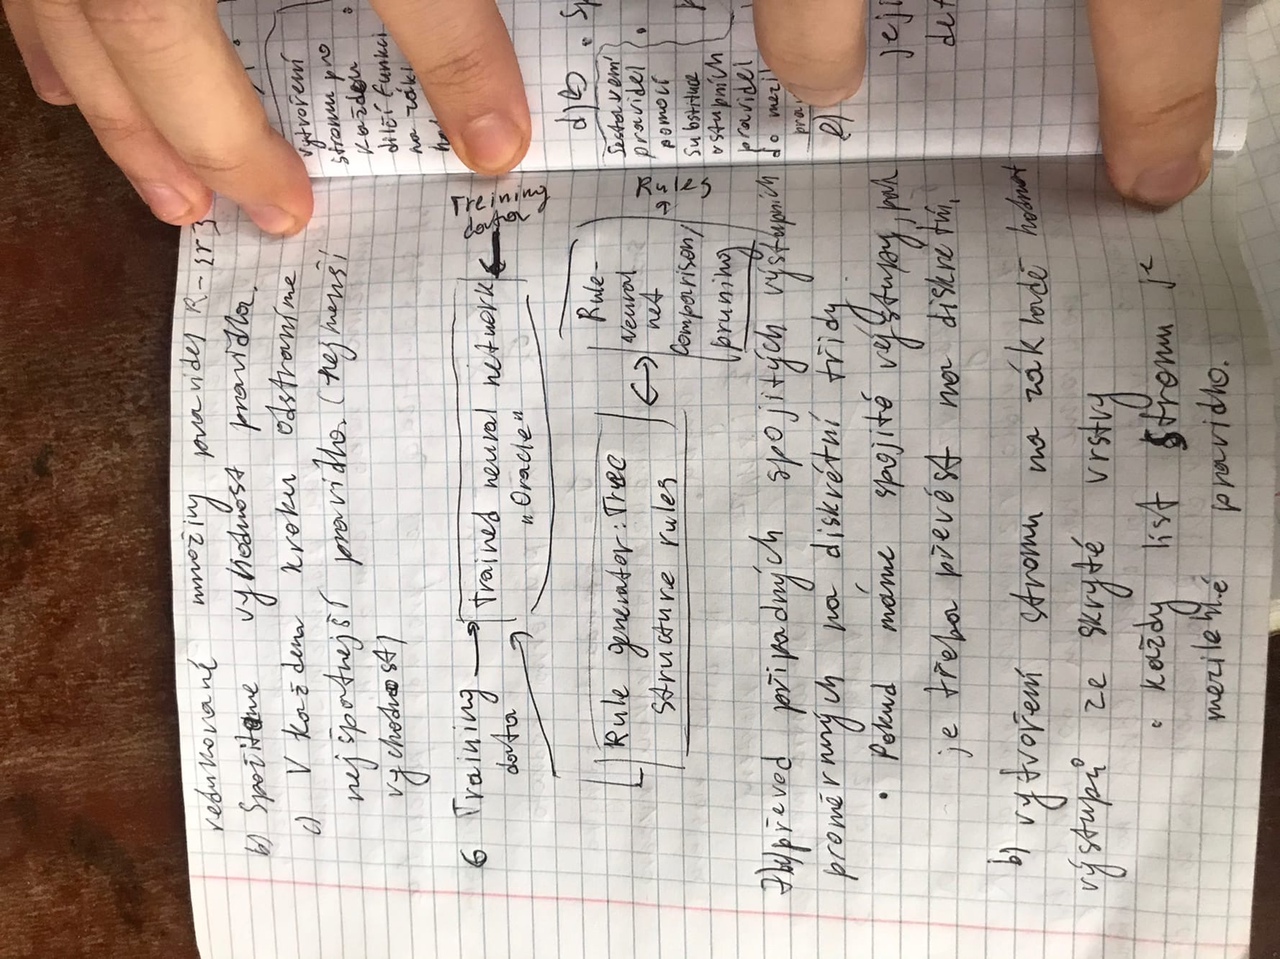 redukované množiny pravidel R-{r}
b) Spočteme výhodnost pravidla.
c) V každém kroku odstraníme
nejšpatnější pravidlo. (nejmenší
vychodnost)
Treining
data
6 Training → trained neural network ←
data
"Oracle"
Rules
Rule generator: Tree
structure rules
↔
Rule-
neural
net
comparison/
pruning
→
převod případných spojitých výstupních
proměnných na diskrétní třídy.
• Pokud máme spojité výstupy, pak
je třeba převést na diskrétní.
b) vytvoření stromu na základě hodnot
výstupů ze skryté vrstvy
• každý list stromu je
mezilehlé pravidlo.
vytvoření
stromu pro
každou
dílčí funkci
d)b)
Sestavení
pravidel
pomocí
substituce
vstupních
pravidel
do
e)
její